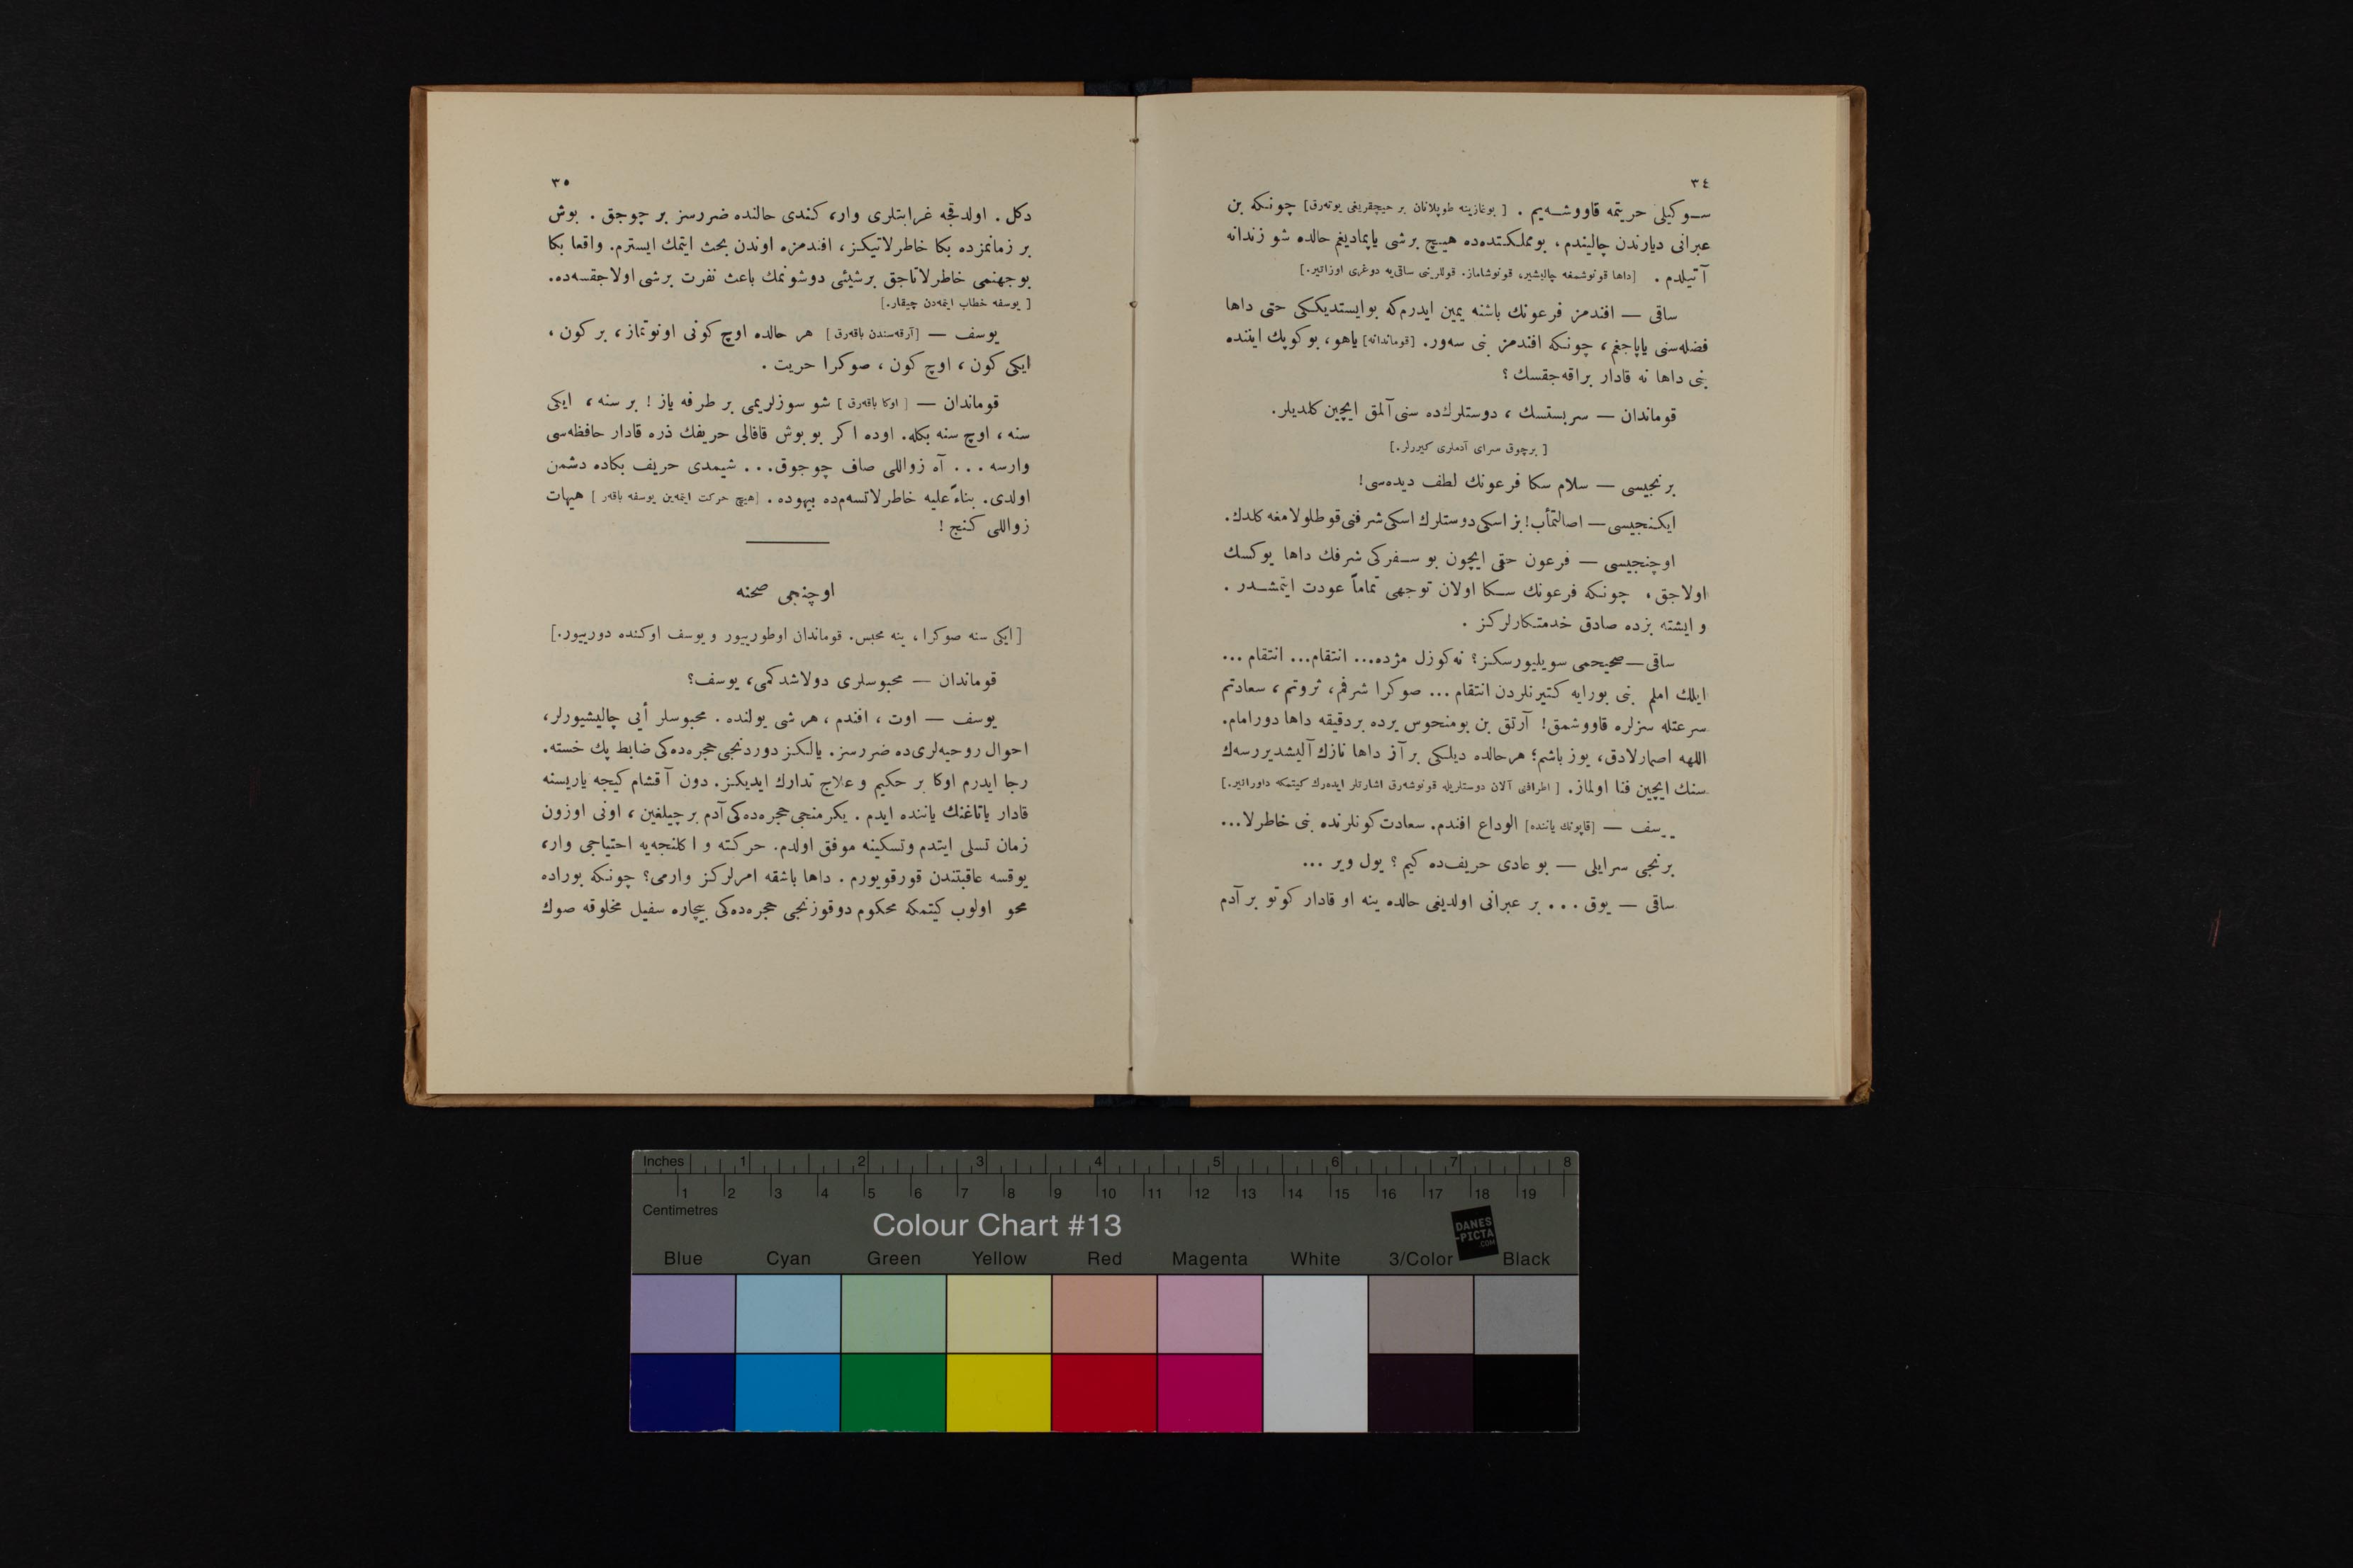 ٣٤
سـوكيلى حريتمه قاووشـه‌يم . [ بوغازينه طوپلانان بر هيچقريغى يوته‌رق] چونكه بن
عبرانى ديارندن چاليندم ، بومملكتده‌ده هيچ برشى ياپماديغم حالده شو زندانه
آتيلدم . [داها قونوشمغه چاليشير، قونوشاماز. قوللرينى ساقى‌يه دوغرى اوزاتير.]
ساقى — افندمز فرعونك باشنه يمين ايدرم‌كه بوايستديككى حتى داها
فضله‌سنى ياپاجغم ، چونكه افندمز بنى سه‌ور. [قوماندانه] ياهو، بوكوپك ايننده
بنى داها نه قادار براقه‌جقسك ؟
قوماندان — سربستسك ، دوستلرك‌ده سنى آلمق ايچين كلديلر.
[ برچوق سراى آدملرى كيررلر.]
برنجيسى — سلام سكا فرعونك لطف ديده‌سى!
ايكنجيسى — اصالتمأب! بز اسكى دوستلرك اسكى شرفنى قوطلولامغه كلدك.
اوچنجيسى — فرعون حقى ايچون بو سـفركى شرفك داها يوكسك
اولاجق ، چونكه فرعونك سـكا اولان توجهى تماماً عودت ايتمشـدر .
و ايشته بزده صادق خدمتكارلركز .
ساقى — صحيحمى سويليورسكز؟ نه‌كوزل مژده... انتقام... انتقام ...
ايلك املم بنى بورايه كتيرنلردن انتقام ... صوكرا شرفم، ثروتم ، سعادتم
سرعتله سزلره قاووشمق! آرتق بن بومنحوس يرده بردقيقه داها دورامام.
اللهه اصمارلادق، يوز باشم؛ هرحالده ديلكى برآز داها نازك آليشديررسه‌ك
سنك ايچين فنا اولماز. [ اطرافنى آلان دوستلريله قونوشه‌رق اشارتلر ايده‌رك كيتمكه داورانير.]
يوسف — [قاپونك ياننده] الوداع افندم. سعادت كونلرنده بنى خاطرلا...
برنجى سرايلى — بو عادى حريف‌ده كيم ؟ يول وير ...
ساقى — يوق ... بر عبرانى اولديغى حالده ينه او قادار كوتو بر آدم
٣٥
دكل . اولدقجه غرابتلرى وار، كندى حالنده ضررسز بر چوجق . بوش
بر زمانمزده بكا خاطرلاتيكز، افندمزه اوندن بحث ايتمك ايسترم. واقعا بكا
بوجهنمى خاطرلاتاجق برشيئى دوشونمك باعث نفرت برشى اولاجقسه‌ده.
[ يوسفه خطاب ايتمه‌دن چيقار.]
يوسف — [آرقه‌سندن باقه‌رق] هر حالده اوچ كونى اونوتماز ، بر كون ،
ايكى كون ، اوچ كون ، صوكرا حريت .
قوماندان — [ اوكا باقه‌رق ] شو سوزلريمى بر طرفه ياز ! بر سنه ، ايكى
سنه ، اوچ سنه بكله. اوده اكر بو بوش قافالى حريفك ذره قادار حافظه‌سى
وارسه ... آه زواللى صاف چوجوق... شيمدى حريف بكاده دشمن
اولدى. بناءً عليه خاطرلاتسه‌م‌ده بيهوده . [هيچ حركت ايتمه‌ين يوسفه باقه‌ر ] هيهات
زواللى كنج !
اوچنجى صحنه
[ ايكى سنه صوكرا ، ينه محبس. قوماندان اوطورييور و يوسف اوكنده دورييور.]
قوماندان — محبوسلرى دولاشدكمى، يوسف؟
يوسف — اوت ، افندم ، هرشى يولنده . محبوسلر أيى چاليشيورلر،
احوال روحيه‌لرى‌ده ضررسز. يالكز دوردنجى حجره‌ده‌كى ضابط پك خسته.
رجا ايدرم اوكا بر حكيم و علاج تدارك ايديكز. دون آقشام كيجه ياريسنه
قادار ياتاغنك ياننده ايدم . يكرمنجى حجره‌ده‌كى آدم بر چيلغين ، اونى اوزون
زمان تسلى ايتدم وتسكينه موفق اولدم. حركته و اكلنجه‌يه احتياجى وار،
يوقسه عاقبتندن قورقويورم . داها باشقه امرلركز وارمى؟ چونكه بوراده
محو اولوب كيتمكه محكوم دوقوزنجى حجره‌ده‌كى بيچاره سفيل مخلوقه صوك
Inches 1 2 3 4 5 6 7 8
1 2 3 4 5 6 7 8 9 10 11 12 13 14 15 16 17 18 19
Centimetres
Colour Chart #13
DANES
-PICTA
.COM
Blue Cyan Green Yellow Red Magenta White 3/Color Black